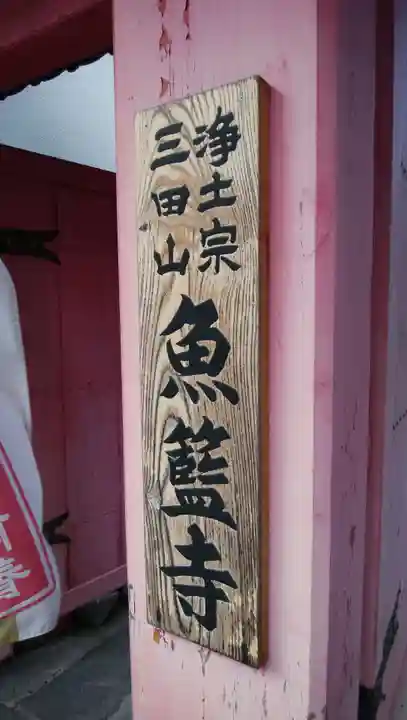 浄土宗
三田山
魚籃寺
春